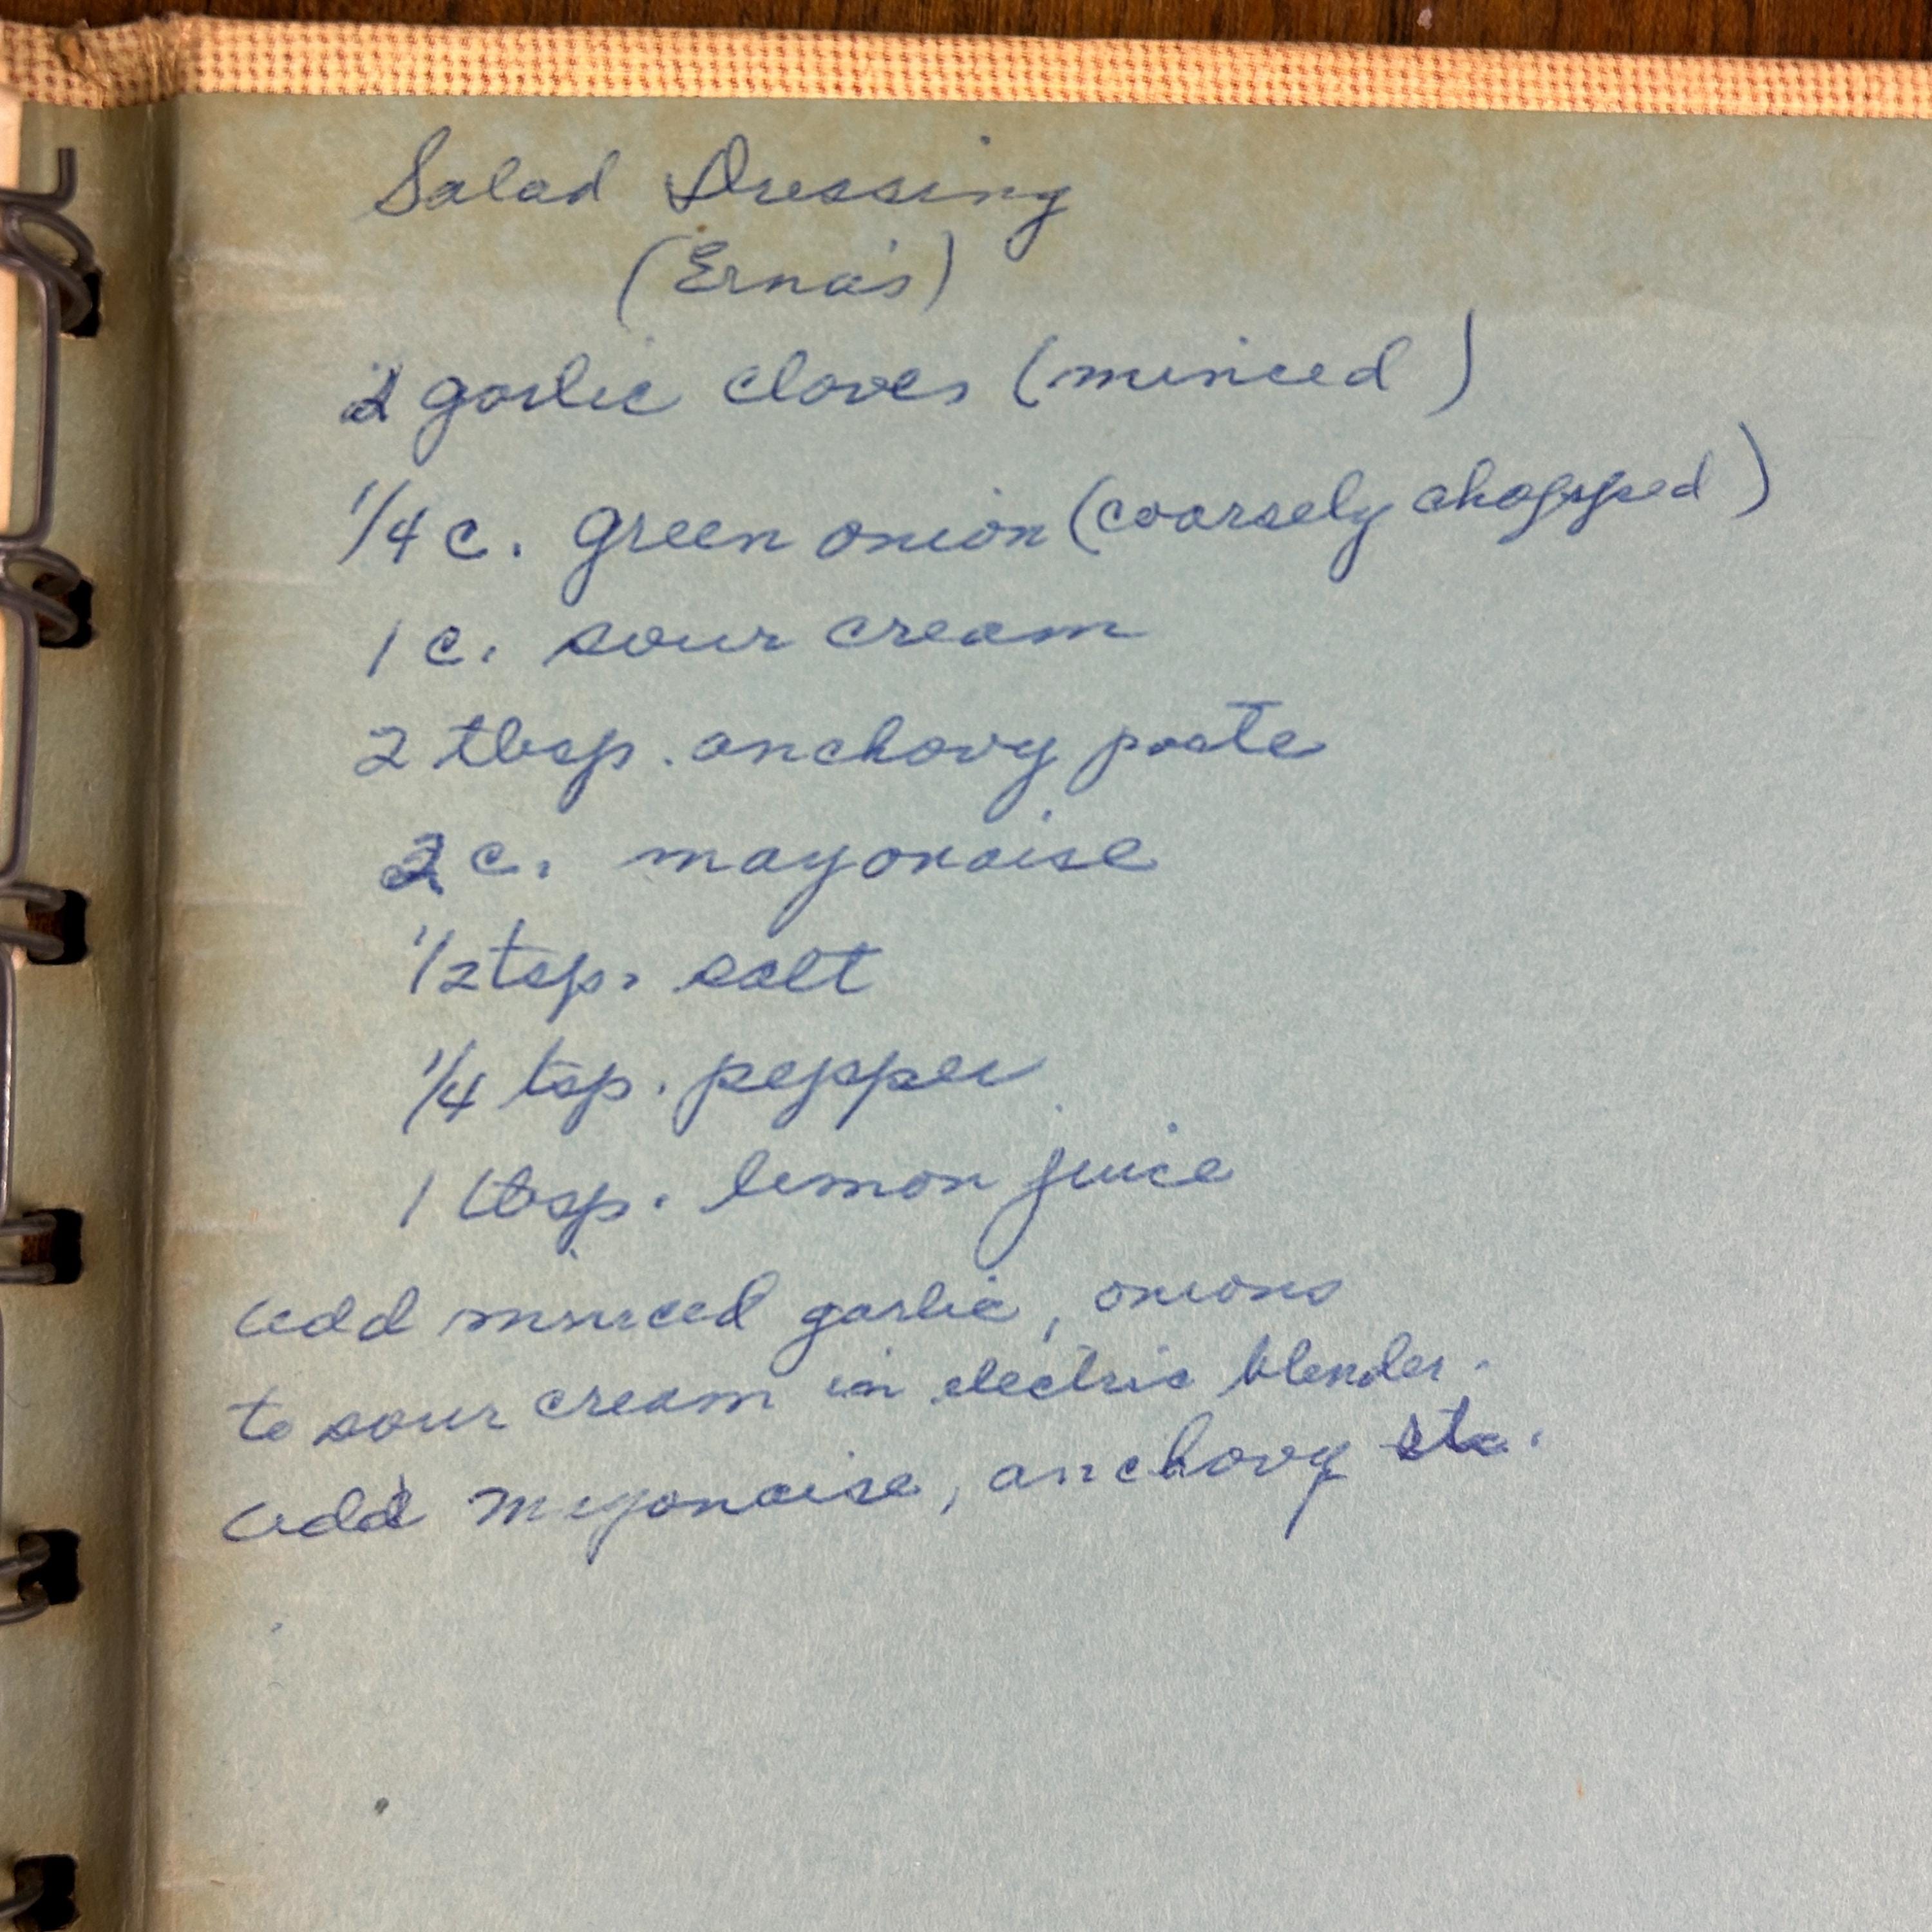 Salad Dressing
(Erna's)
2 garlic cloves (minced)
1/4 c. green onion (coarsely chopped)
1 c. sour cream
2 tbsp. anchovy paste
2 c. mayonaise
1/2 tsp. salt
1/4 tsp. pepper
1 tbsp. lemon juice
add minced garlic, onions
to sour cream in electric blender.
add mayonaise, anchovy etc.